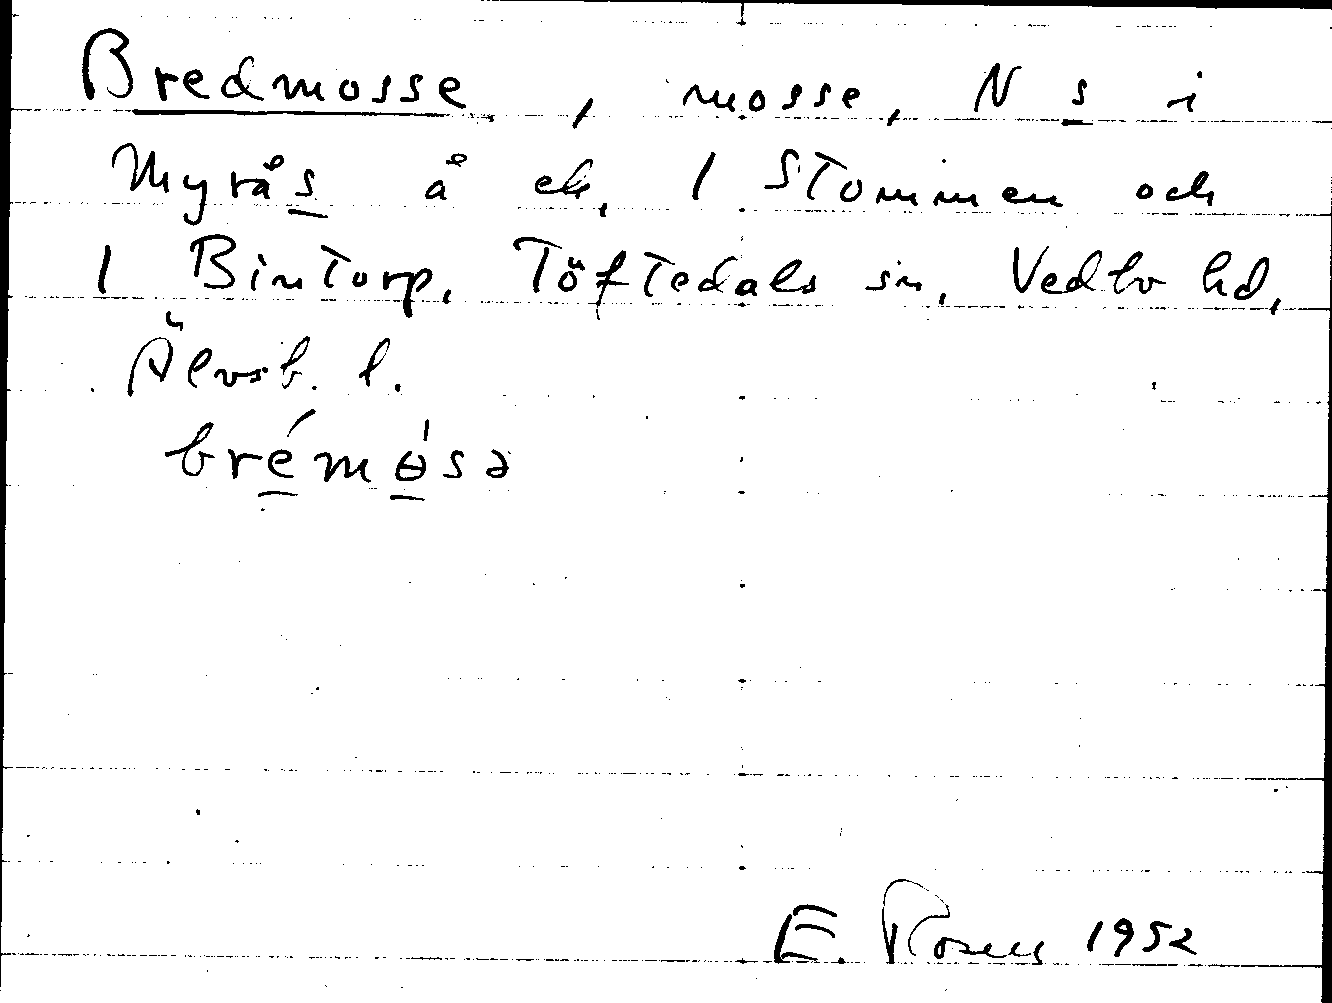 Bredmosse, mosse, N s i
Myrås å ek. 1 Stommen och
1 Bintorp, Töftedals sn, Vedbo hd,
Älvsb. l.
brémɵ́sə
E. Rosell 1952